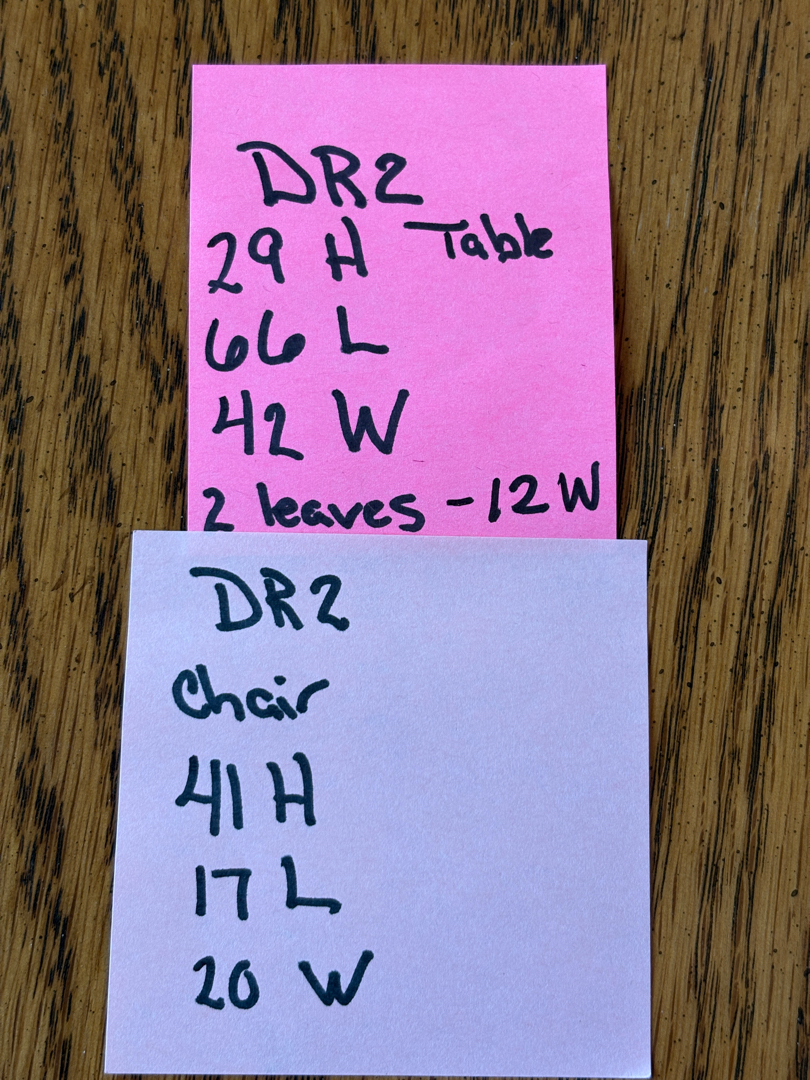 DR2
29 H Table
66 L
42 W
2 leaves - 12 W
DR2
Chair
41 H
17 L
20 W